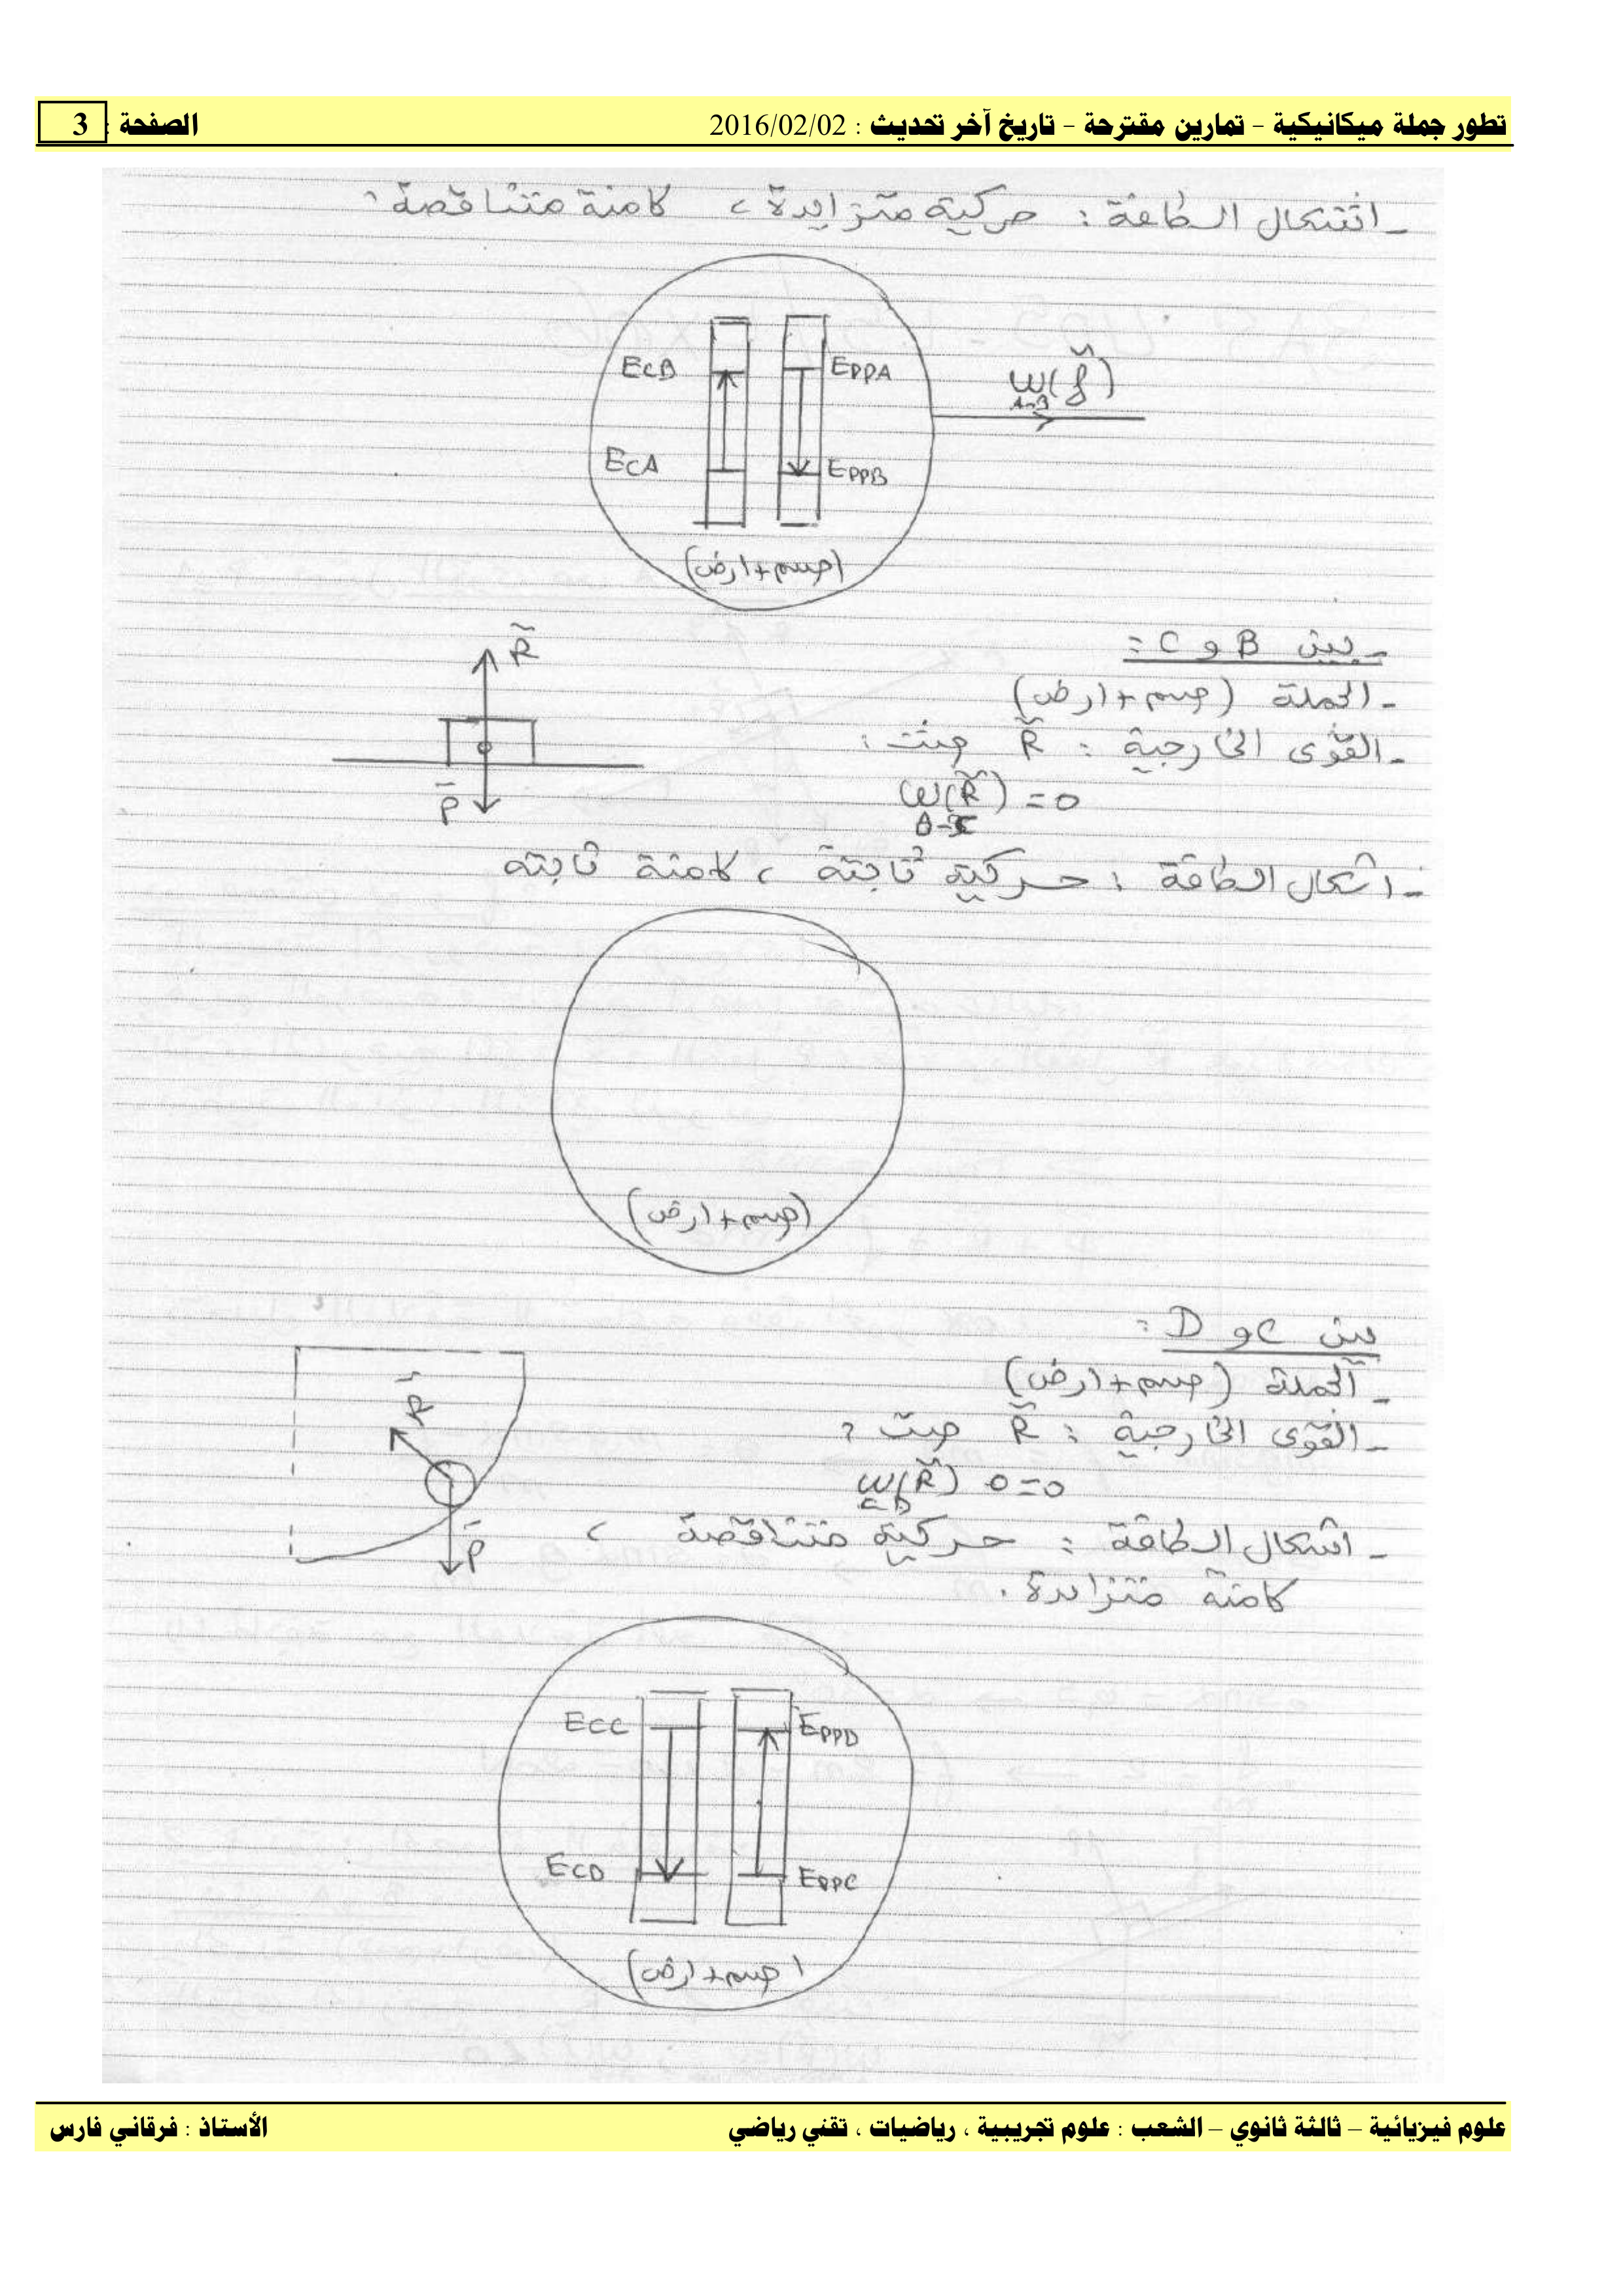 تطور جملة ميكانيكية - تمارين مقترحة - تاريخ آخر تحديث : 2016/02/02
الصفحة : 3
- اشكال الطاقة : حركية متزايدة ، كامنة متناقصة .
EcB
EPPA
W(f)
A-B
EcA
EPPB
(جسم + ارض)
- بين B و C :
- الجملة (جسم + ارض)
- القوى الخارجية : R حيث :
W(R) = 0
B-C
R
P
- اشكال الطاقة : حركية ثابتة ، كامنة ثابته
(جسم + ارض)
بين C و D :
- الجملة (جسم + ارض)
- القوى الخارجية : R حيث :
W(R) 0=0
C-D
R
P
- اشكال الطاقة : حركية متناقصة ،
كامنة متزايدة .
ECC
EPPD
ECD
EPPC
(جسم + ارض)
علوم فيزيائية – ثالثة ثانوي – الشعب : علوم تجريبية ، رياضيات ، تقني رياضي
الأستاذ : فرقاني فارس